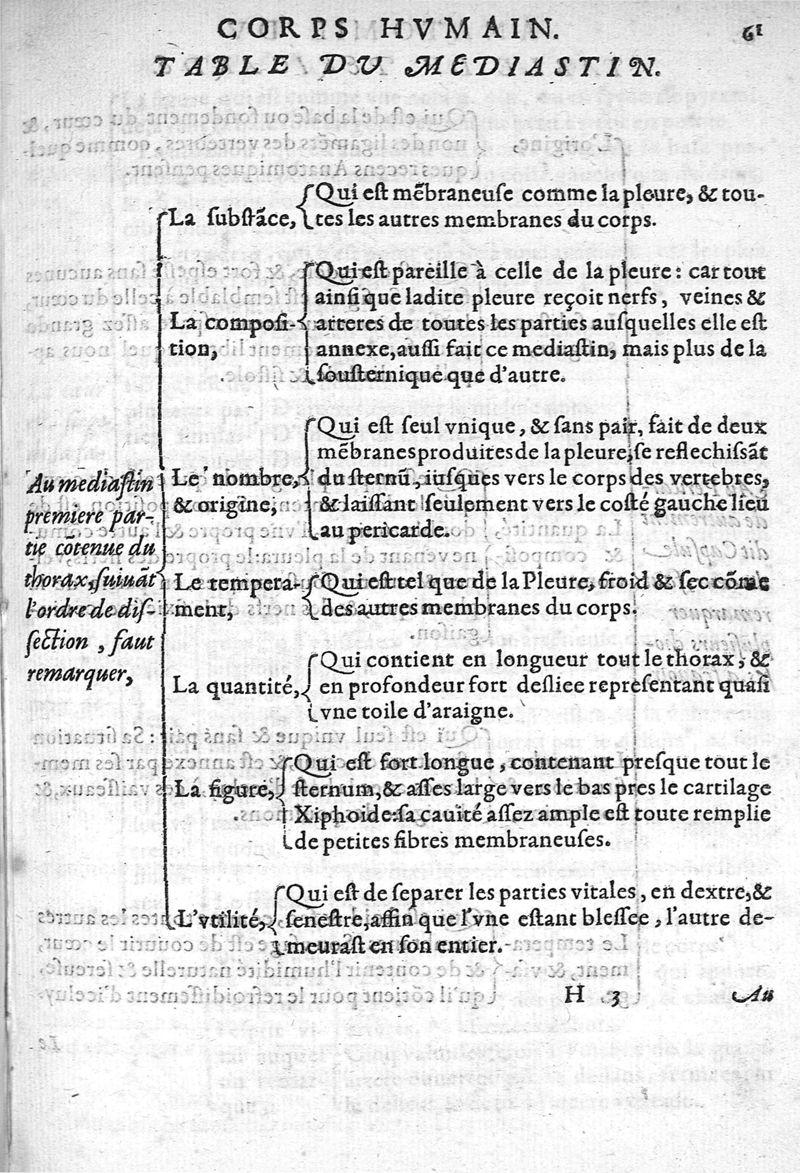 CORPS HVMAIN. 61
TABLE DU MEDIASTIN.
Au mediastin
premiere par-
tie cõtenue du
thorax, suiuãt
l'ordre de dis-
section, faut
remarquer,
La substãce,
Qui est mẽbraneuse comme la pleure, & tou-
tes les autres membranes du corps.
La composi-
tion,
Qui est pareille à celle de la pleure : car tout
ainsi que ladite pleure reçoit nerfs, veines &
arteres de toutes les parties ausquelles elle est
annexe, aussi fait ce mediastin, mais plus de la
sousternique que d'autre.
Le nombre,
& origine,
Qui est seul vnique, & sans pair, fait de deux
mẽbranes produites de la pleure, se reflechissãt
du sternũ, iusques vers le corps des vertebres,
& laissant seulement vers le costé gauche lieu
au pericarde.
Le tempera-
ment,
Qui est tel que de la Pleure, froid & sec cõme
des autres membranes du corps.
La quantité,
Qui contient en longueur tout le thorax, &
en profondeur fort desliee representant quasi
vne toile d'araigne.
La figure,
Qui est fort longue, contenant presque tout le
sternum, & asses large vers le bas pres le cartilage
Xiphoide: sa cauité assez ample est toute remplie
de petites fibres membraneuses.
L'vtilité,
Qui est de separer les parties vitales, en dextre, &
senestre, affin que l'vne estant blessee, l'autre de-
meurast en son entier.
H 3 Au